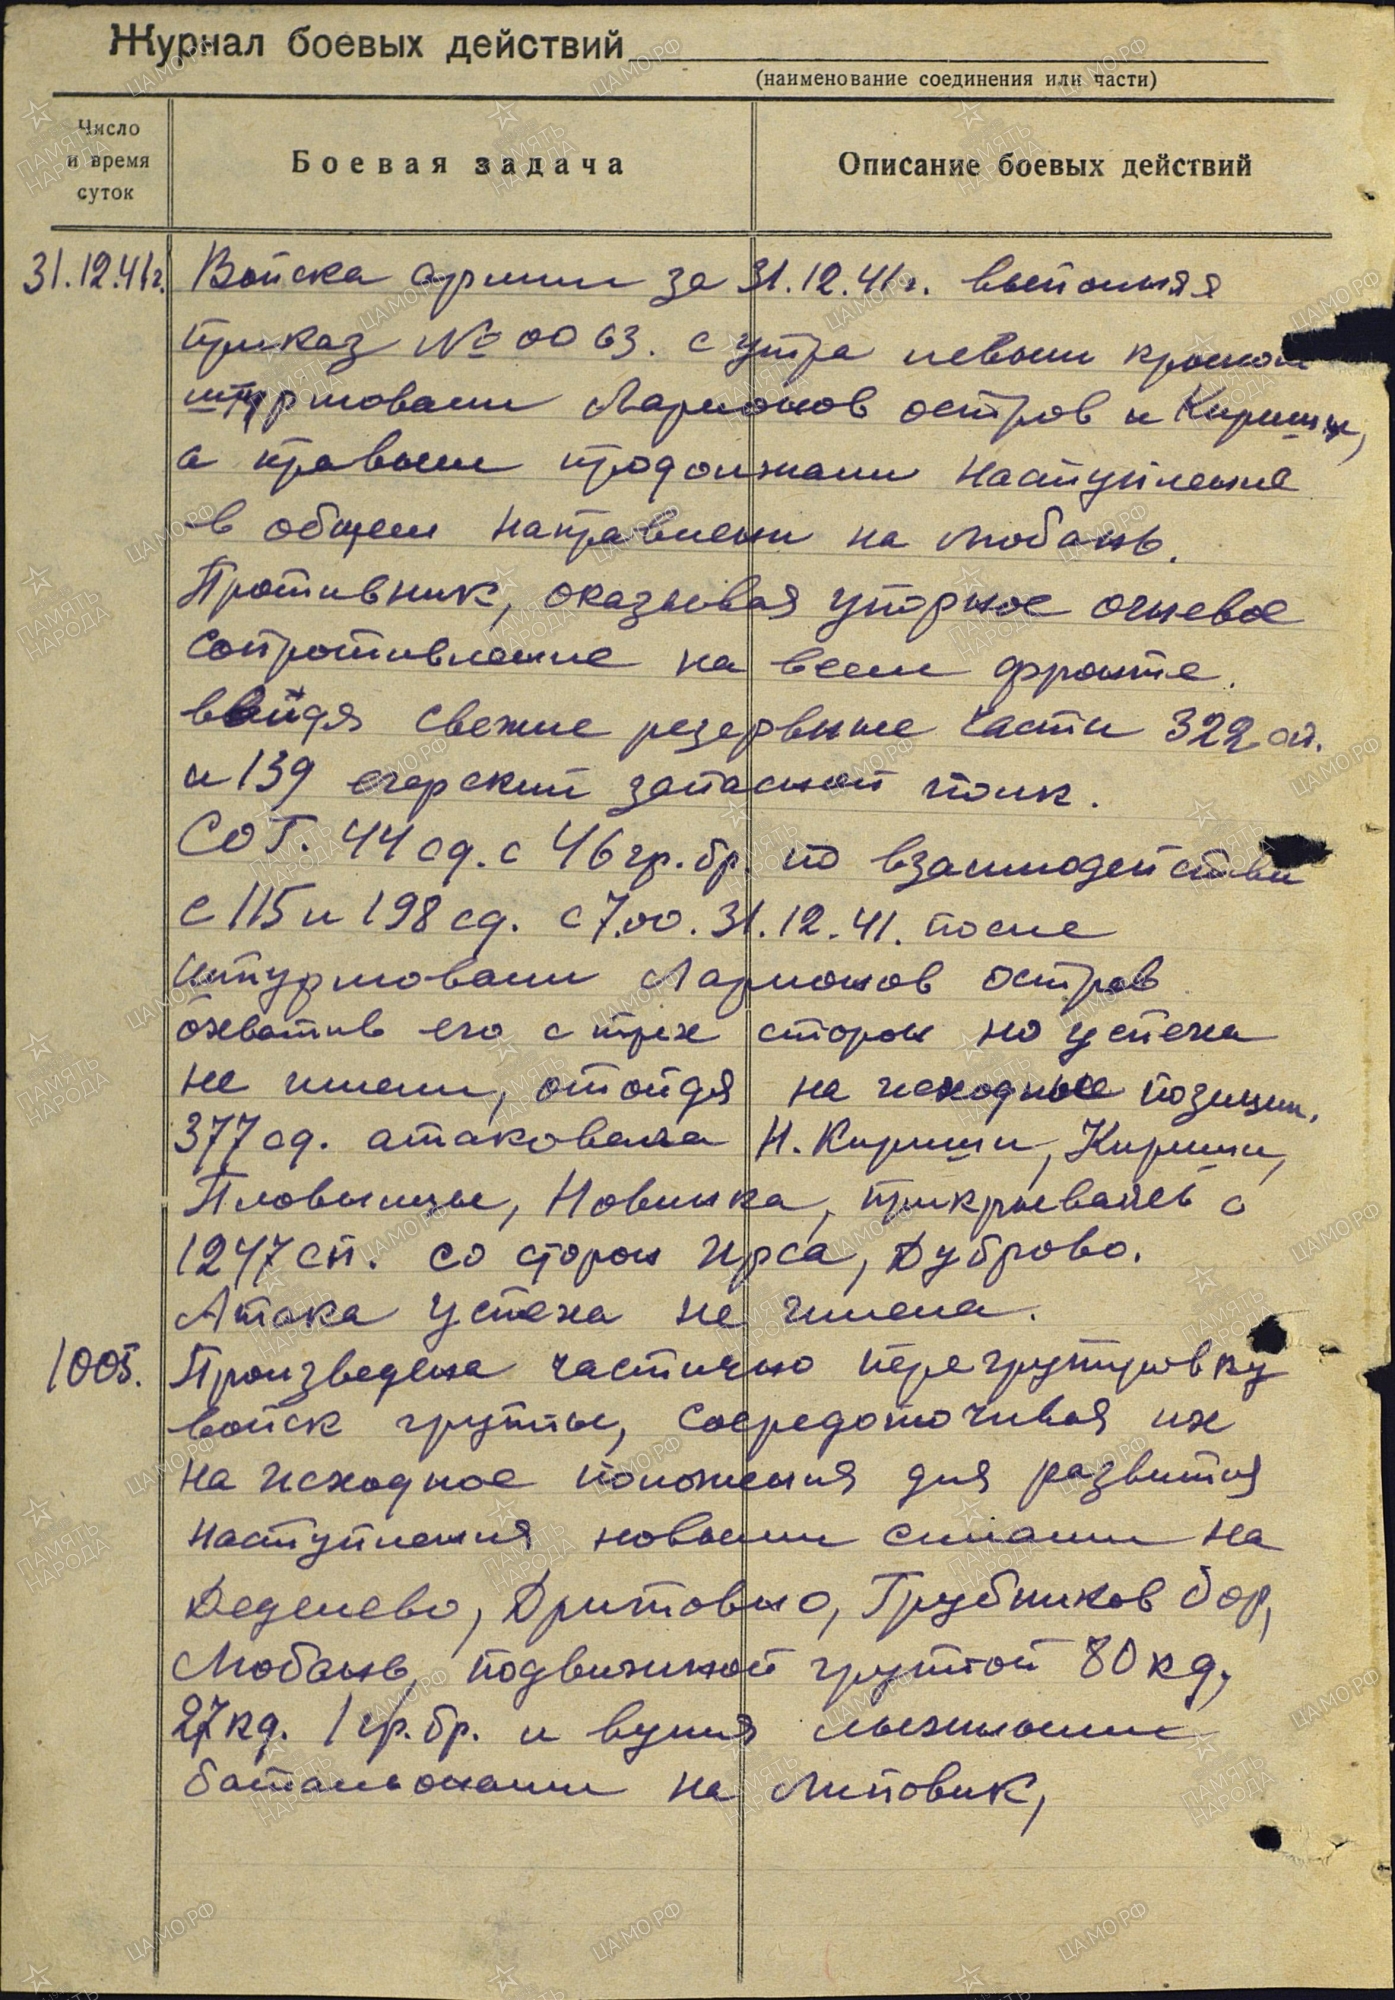 Журнал боевых действий
(наименование соединения или части)
Число
и время
суток
Боевая задача
Описание боевых действий
31.12.41г. Войска армии за 31.12.41г. выполняя
приказ № 0063. с утра левым крылом
штурмовали Ларионов остров и Кириши,
а правым продолжали наступление
в общем направлении на Любань.
Противник, оказывая упорное огневое
сопротивление на всем фронте.
введя свежие резервные части 322
и 139 егерский запасной полк.
СОГ. 44 сд. с 46 гр.бр. по взаимодействии
с 115 и 198 сд. с 7.00. 31.12.41. после
штурмовали Ларионов остров
охватив его с трех сторон но успеха
не имели, отойдя на исходные позиции.
377 сд. атаковала Н. Кириши, Кириши,
Плавницы, Новинка, прикрываясь с
1247 сп. со сторон Ирса, Дуброво.
Атака успеха не имела.
1005. Произведена частично перегруппировку
войск группы, сосредоточивая их
на исходное положения для развития
наступления новыми силами на
Деделево, Дритовно, Трубников бор,
Любань, подвижной группой 80 кд,
27 кд. 1 гр.бр. и вумя лыжными
батальонами на Липовик,
ПАМЯТЬ НАРОДА
ЦАМО.РФ